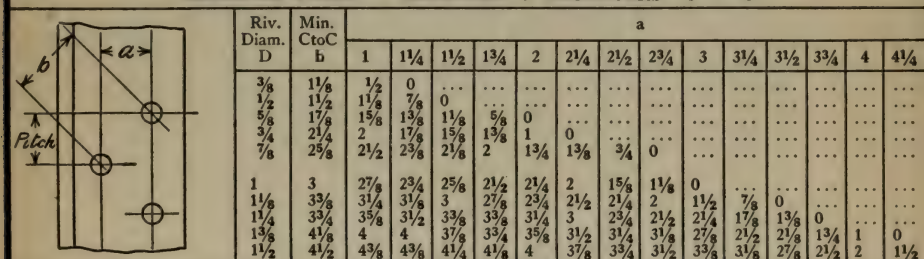 b
a
Pitch
Riv. Diam. D Min. CtoC b a
1 1¼ 1½ 1¾ 2 2¼ 2½ 2¾ 3 3¼ 3½ 3¾ 4 4¼
⅜ 1⅛ ½ 0 ... ... ... ... ... ... ... ... ... ... ... ...
½ 1½ 1⅛ ⅞ 0 ... ... ... ... ... ... ... ... ... ... ...
⅝ 1⅞ 1⅝ 1⅜ 1⅛ ⅝ 0 ... ... ... ... ... ... ... ... ...
¾ 2¼ 2 1⅞ 1⅝ 1⅜ 1 0 ... ... ... ... ... ... ... ...
⅞ 2⅝ 2½ 2⅜ 2⅛ 2 1¾ 1⅜ ¾ 0 ... ... ... ... ... ...
1 3 2⅞ 2¾ 2⅝ 2½ 2¼ 2 1⅝ 1⅛ 0 ... ... ... ... ...
1⅛ 3⅜ 3¼ 3⅛ 3 2⅞ 2¾ 2½ 2¼ 2 1½ ⅞ 0 ... ... ...
1¼ 3¾ 3⅝ 3½ 3⅜ 3⅜ 3¼ 3 2¾ 2½ 2¼ 1⅞ 1⅜ 0 ... ...
1⅜ 4⅛ 4 4 3⅞ 3¾ 3⅝ 3½ 3¼ 3⅛ 2⅞ 2½ 2⅛ 1¾ 1 0
1½ 4½ 4⅜ 4⅜ 4¼ 4⅛ 4 3⅞ 3¾ 3½ 3⅜ 3⅛ 2⅞ 2½ 2 1½